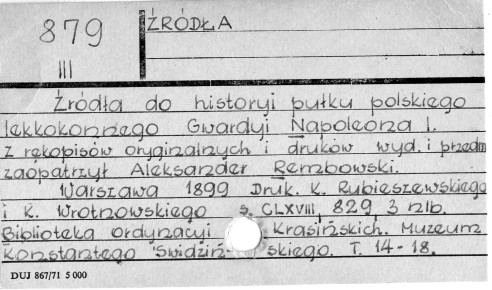 879
III
ŹRÓDŁA
Źródła do historyi pułku polskiego
lekkokonnego Gwardyi Napoleona I.
Z rękopisów oryginalnych i druków wyd. i przedm
zaopatrzył Aleksander Rembowski.
Warszawa 1899 Druk. K. Rubieszewskiego
i K. Wrotnowskiego s. CLXVIII, 829, 3 nlb.
Biblioteka ordynacyi Krasińskich. Muzeum
Konstantego Świdziń skiego. T. 14-18.
DUJ 867/71 5 000